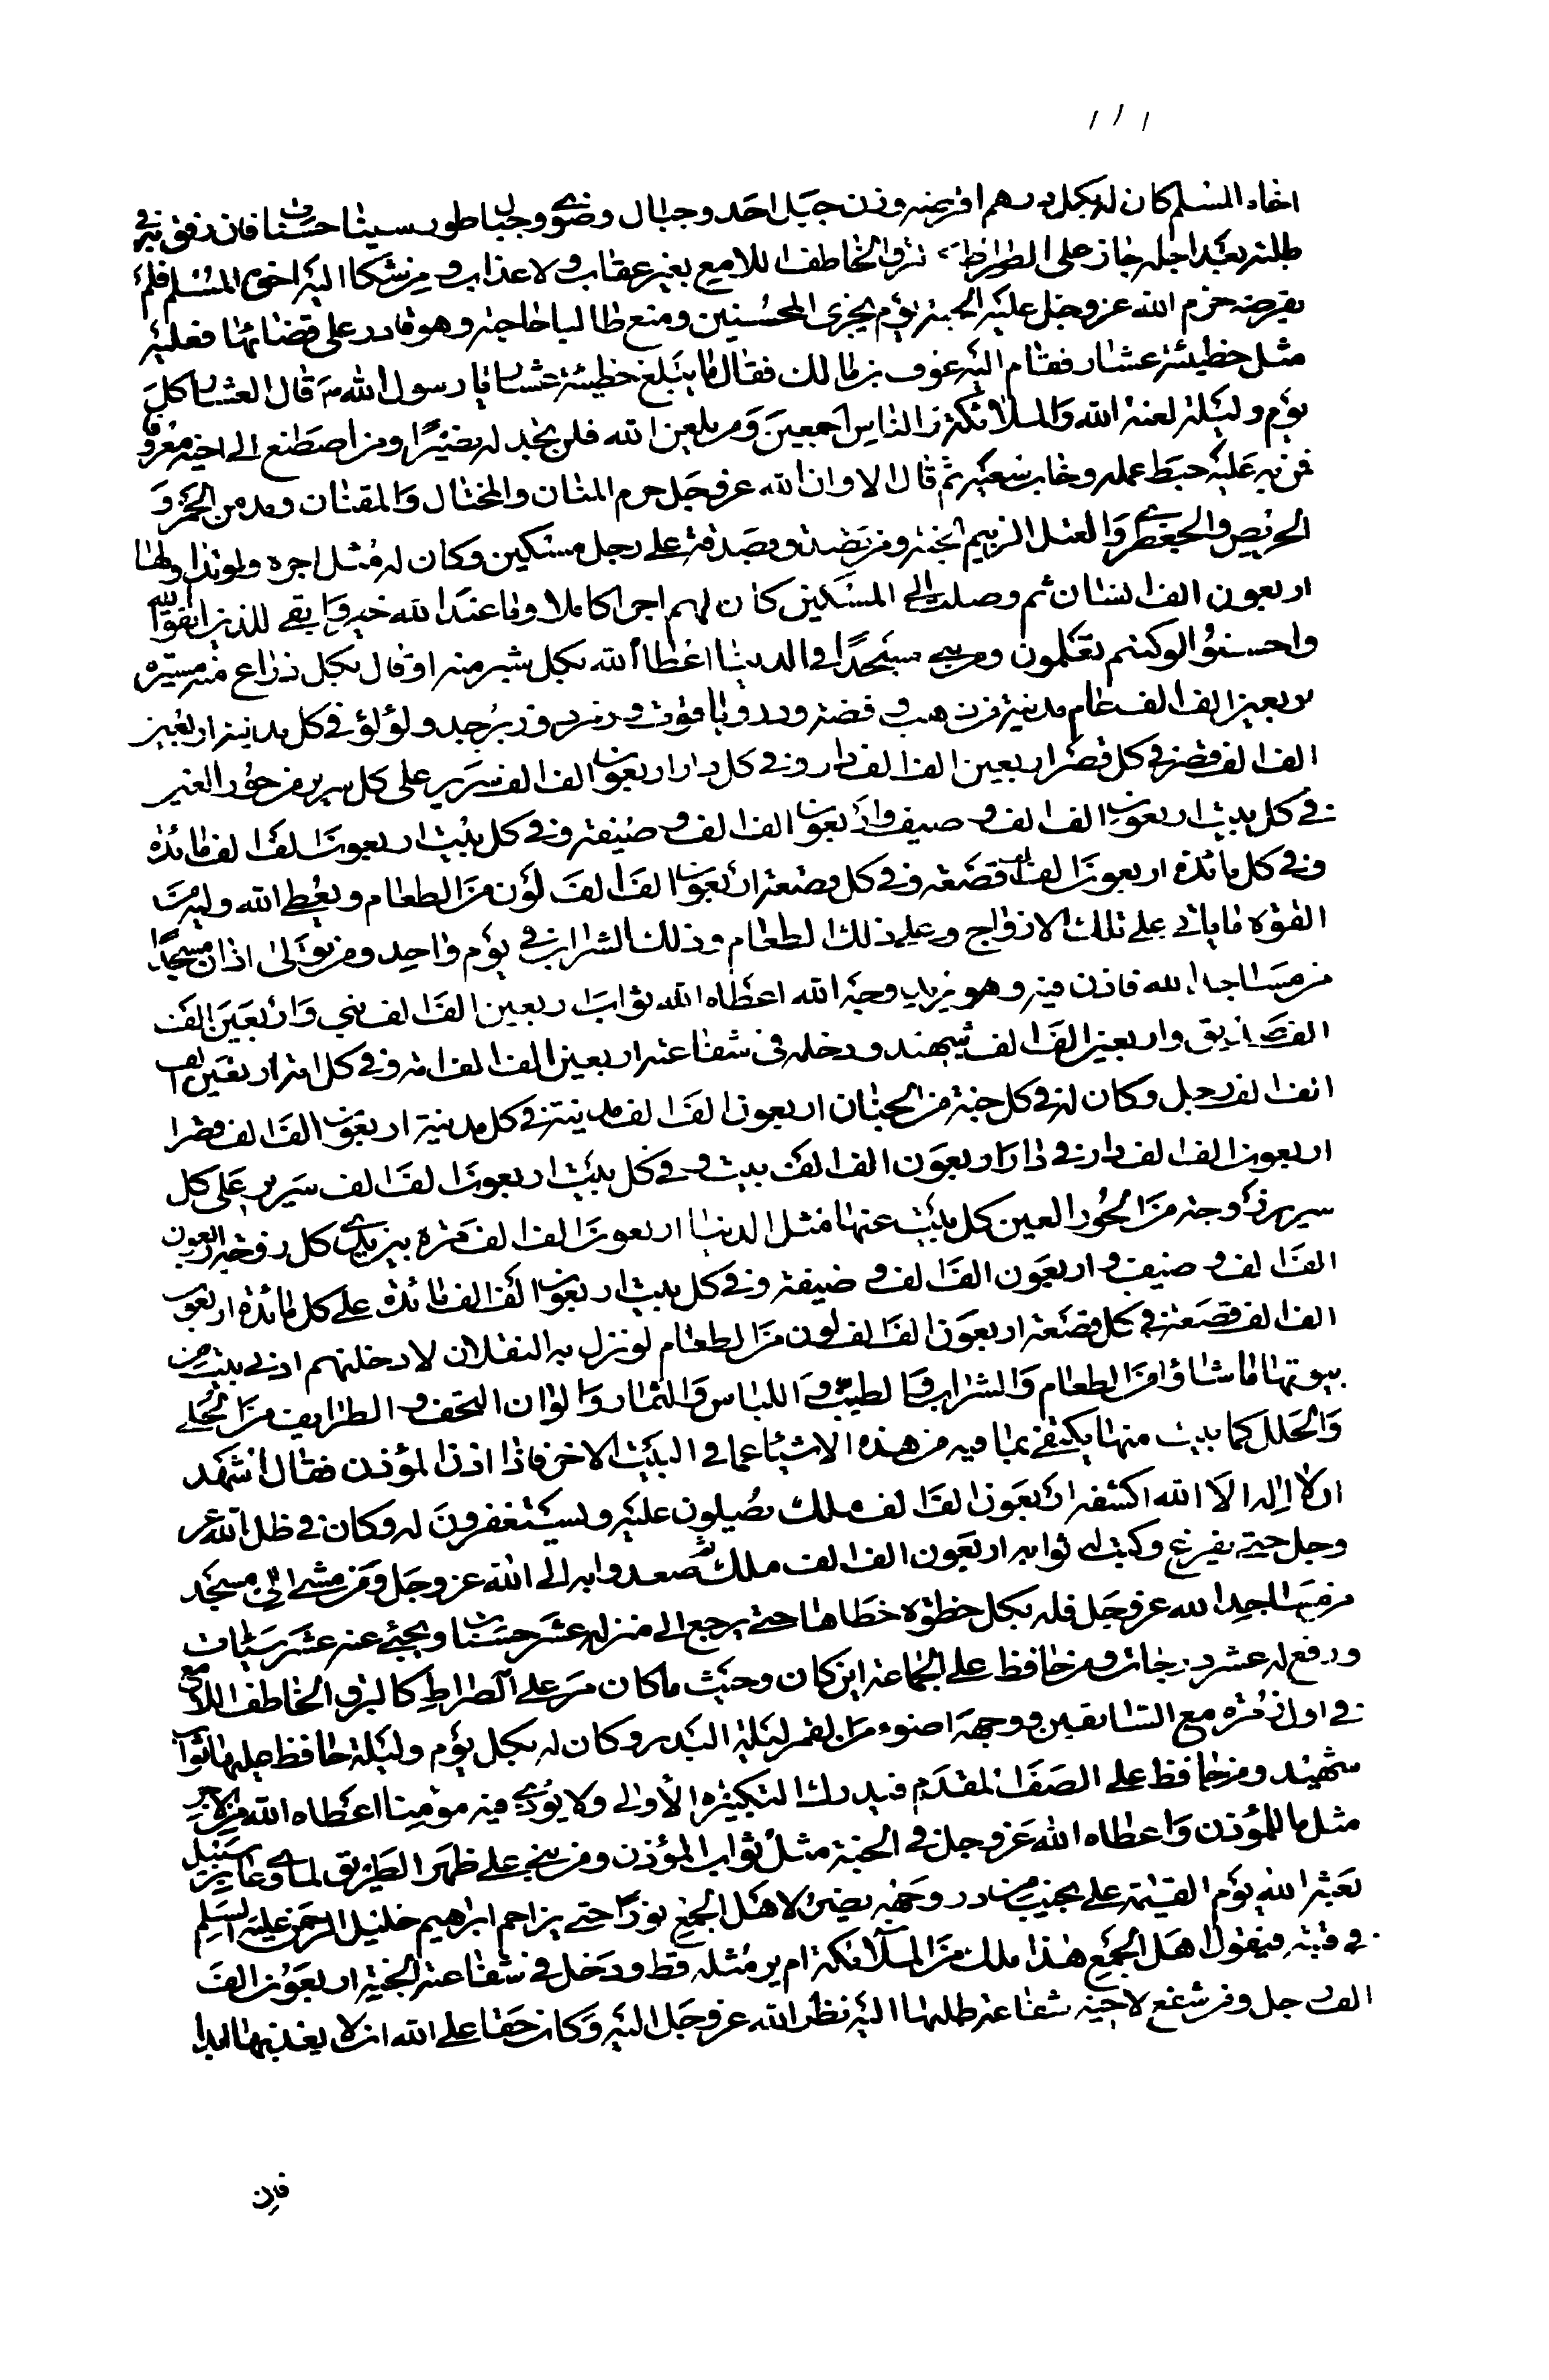 ١١١
اخاه المسلم كان له بكل درهم اقرضه وزن جبل احد وجبال رضوى وجبال طور سينا حسنات فان رفق به في
طلبه بعد اجله جاز على الصراط كالبرق الخاطف اللامع بغير حساب ولا عذاب ومن شكا اليه اخوه المسلم فلم
يقرضه حرم الله عز وجل عليه الجنة يوم يجزى المحسنين ومن منع طالبا حاجته وهو قادر على قضائها فعليه
مثل خطيئة عشار فقام اليه عوف بن مالك فقال ما يبلغ خطيئة عشار يا رسول الله ص قال العشار كل
يوم وليلة لعنة الله والملائكة والناس اجمعين ومن يلعن الله فلن تجد له نصيرا ومن اصطنع الى اخيه معروفا
فمن به عليه حبط عمله وخاب سعيه ثم قال الا وان الله عز وجل حرم المنان والمختال والفتان ومدمن الخمر و
الحريص والجعظرى والعتل الزنيم الجنة ومن تصدق بصدقة على رجل مسكين وكان له مثل اجره ولو تداولها
اربعون الف انسان ثم وصلت الى المسكين كان لهم اجرا كاملا وما عند الله خير وابقى للذين اتقوا الله
واحسنوا لو كنتم تعلمون ومن بنى مسجدا في الدنيا اعطاه الله بكل شبر منه او قال بكل ذراع منه مسيرة
اربعين الف الف عام مدينة من ذهب وفضة ودر وياقوت وزمرد وزبرجد ولؤلؤ في كل مدينة اربعين
الف الف قصر في كل قصر اربعين الف الف دار وفي كل دار اربعون الف الف سرير على كل سرير من حور العين
في كل بيت اربعون الف الف وصيف واربعون الف الف وصيفة وفي كل بيت اربعون الف الف مائدة
وفي كل مائدة اربعون الف الف قصعة وفي كل قصعة اربعون الف الف لون من الطعام ويعطى الله وليه من
القوة ما ياتي على تلك الازواج وعلى ذلك الطعام وذلك الشراب في يوم واحد ومن تولى اذان مسجد
من مساجد الله فاذن فيه وهو يريد وجه الله اعطاه الله ثواب اربعين الف الف نبي واربعين الف
الف صديق واربعين الف الف شهيد ودخل في شفاعته اربعين الف الف امة وفي كل امة اربعين الف
الف رجل وكان له في كل جنة من الجنان اربعون الف الف مدينة في كل مدينة اربعون الف الف قصر
اربعون الف الف دار في دار اربعون الف الف بيت وفي كل بيت اربعون الف الف سرير على كل
سرير زوجة من الحور العين كل بيت عنها مثل الدنيا اربعون الف الف مرة بين يدي كل زوجة اربعون
الف الف وصيف واربعون الف الف وصيفة وفي كل بيت اربعون الف الف مائدة على كل مائدة اربعون
الف الف قصعة في كل قصعة اربعون الف الف لون من الطعام لو نزل به الثقلان لادخلتهم ادنى بيت من
بيوتها ما شاؤا من الطعام والشراب والطيب واللباس والثمار والوان التحف والطرايف من الحلي
والحلل كما بيت منها يكتفى بما فيه من هذه الاشياء عما في البيت الاخر فاذا اذن المؤذن فقال اشهد
ان لا اله الا الله اكتنفه اربعون الف الف ملك يصلون عليه ويستغفرون له وكان في ظل الله عز
وجل حتى يفرغ وكتب له ثوابه اربعون الف الف ملك ثم صعدوا به الى الله عز وجل ومن مشى الى مسجد
من مساجد الله عز وجل فله بكل خطوة خطاها حتى يرجع الى منزله عشر حسنات ويمحى عنه عشر سيئات
ورفع له عشر درجات ومن حافظ على الجماعة اين كان وحيث ما كان مر على الصراط كالبرق الخاطف اللامع
في اول زمرة مع السابقين ووجهه اضوء من القمر ليلة البدر وكان له بكل يوم وليلة حافظ عليها ثواب
شهيد ومن حافظ على الصف المقدم فيدرك التكبيرة الاولى ولا يؤذى فيه مؤمنا اعطاه الله من الاجر
مثل ما للمؤذن واعطاه الله عز وجل في الجنة مثل ثواب المؤذن ومن بنى على ظهر الطريق لماوى عابر سبيل
بعثه الله يوم القيمة على نجيب من در ووجهه يضئ لاهل الجمع نورا حتى يزاحم ابراهيم خليل الرحمن عليه السلم
في قبته فيقول اهل الجمع هذا ملك من الملائكة لم ير مثله قط ودخل في شفاعته الجنة اربعون الف
الف رجل ومن شفع لاخيه شفاعة طلبها اليه نظر الله عز وجل اليه وكان حقا على الله ان لا يعذبها ابدا
فان